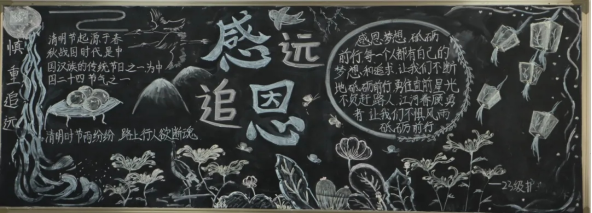 慎重追远
清明节起源于春
秋战国时代是中
国汉族的传统节日之一为中
国二十四节气之一
清明时节雨纷纷 路上行人欲断魂
感远
追恩
感恩梦想 砥砺
前行每一个人都有自己的
梦想和追求 让我们不断
地砥砺前行勇往直前星光
不负赶路人 江河眷属勇
者 让我们不惧风雨
砥砺前行